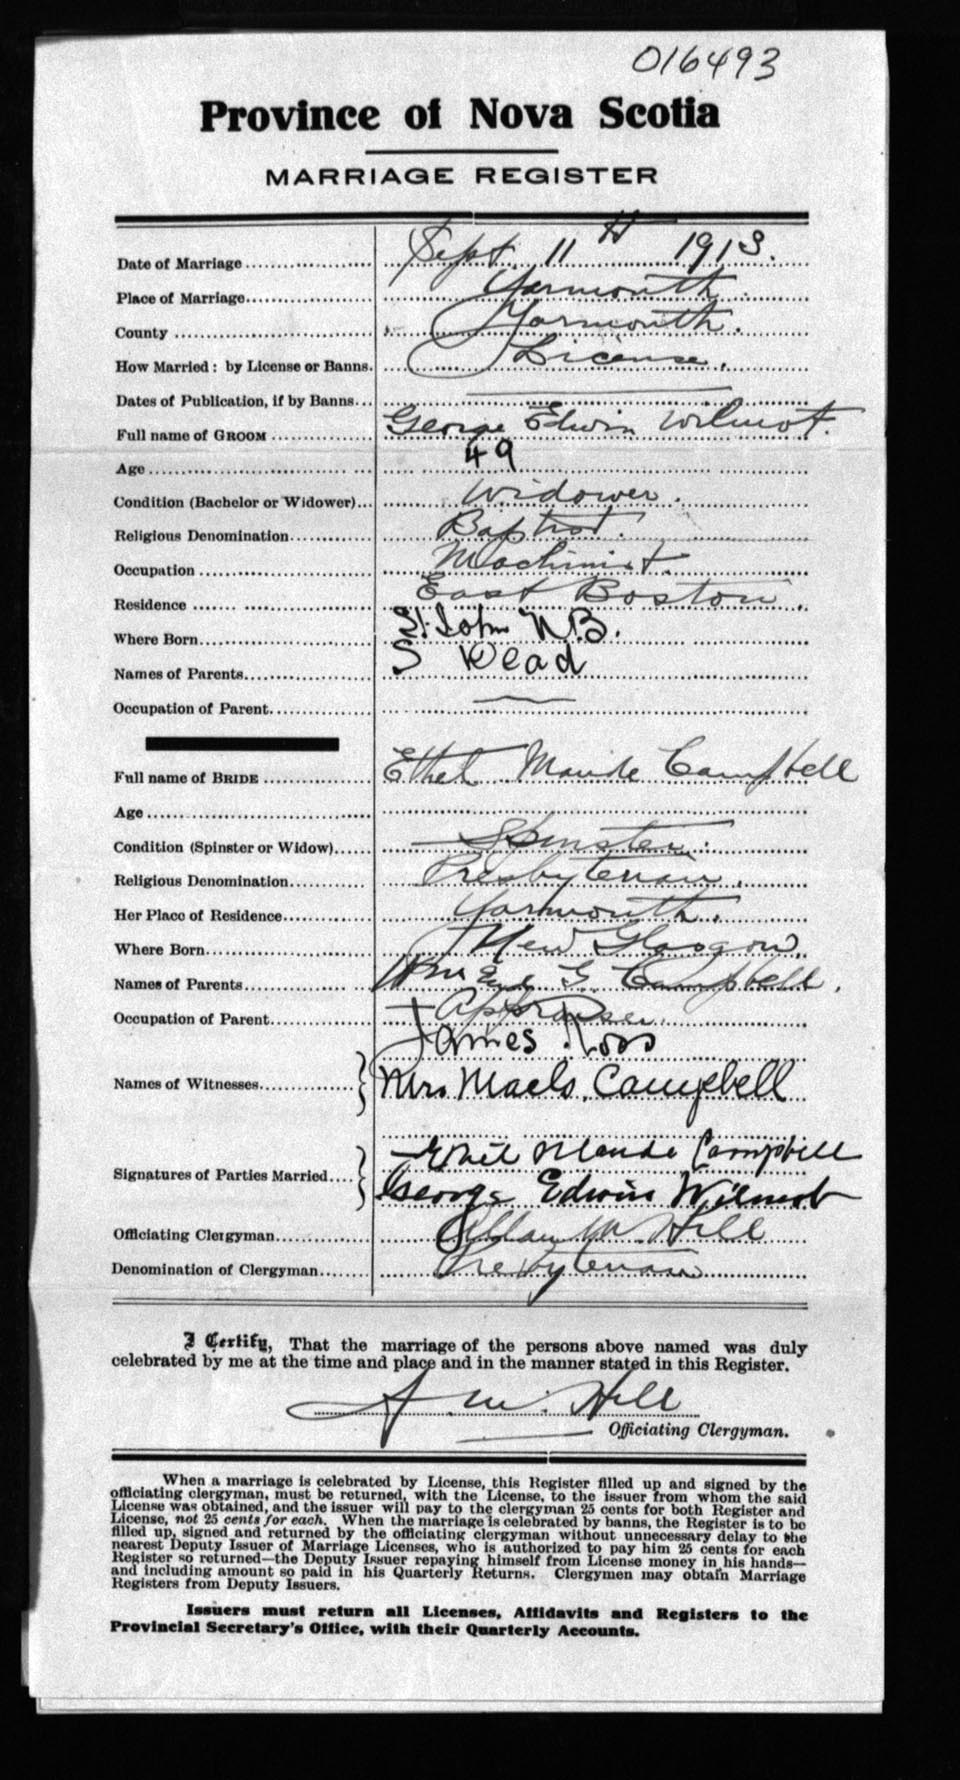 016493
Province of Nova Scotia
MARRIAGE REGISTER
Date of Marriage Sept. 11th 1913.
Place of Marriage Yarmouth
County Yarmouth.
How Married: by License or Banns. License.
Dates of Publication, if by Banns
Full name of GROOM George Edwin Wilmot.
Age 49
Condition (Bachelor or Widower) Widower.
Religious Denomination Baptist.
Occupation Machinist.
Residence East Boston.
Where Born St John N.B.
Names of Parents Dead
Occupation of Parent —
Full name of BRIDE Ethel Maude Campbell
Age
Condition (Spinster or Widow) Spinster.
Religious Denomination Presbyterian.
Her Place of Residence Yarmouth.
Where Born New Glasgow.
Names of Parents Wm G. Campbell.
Occupation of Parent Appraiser.
James Ross
Names of Witnesses Mrs. Campbell
Ethel Maude Campbell
Signatures of Parties Married George Edwin Wilmot
Officiating Clergyman M. Hill
Denomination of Clergyman Presbyterian
I Certify, That the marriage of the persons above named was duly
celebrated by me at the time and place and in the manner stated in this Register.
A. M. Hill
Officiating Clergyman.
When a marriage is celebrated by License, this Register filled up and signed by the
officiating clergyman, must be returned, with the License, to the issuer from whom the said
License was obtained, and the issuer will pay to the clergyman 25 cents for both Register and
License, not 25 cents for each. When the marriage is celebrated by banns, the Register is to be
filled up, signed and returned by the officiating clergyman without unnecessary delay to the
nearest Deputy Issuer of Marriage Licenses, who is authorized to pay him 25 cents for each
Register so returned—the Deputy Issuer repaying himself from License money in his hands—
and including amount so paid in his Quarterly Returns. Clergymen may obtain Marriage
Registers from Deputy Issuers.
Issuers must return all Licenses, Affidavits and Registers to the
Provincial Secretary's Office, with their Quarterly Accounts.